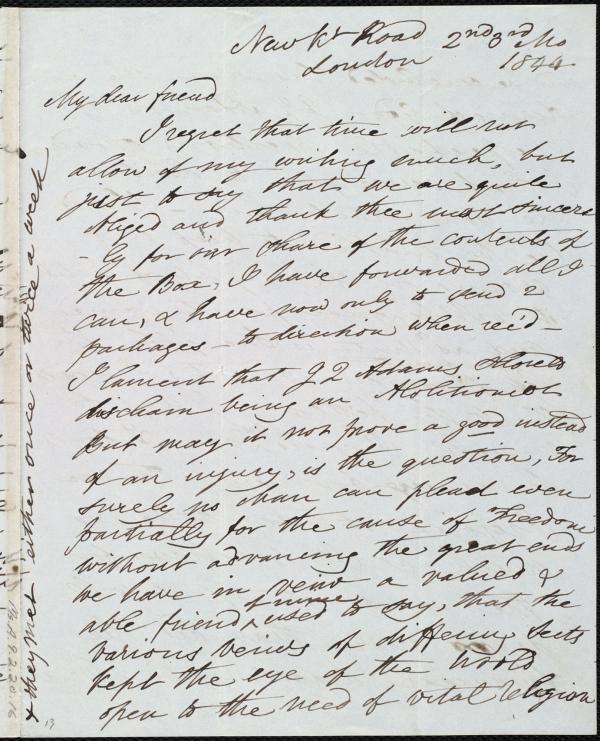 New Kt Road 2nd 3rd Mo
London 1844
My dear friend
I regret that time will not
allow of my writing much, but
just to say that we are quite
obliged and thank thee most sincere
-ly for our share of the contents of
the Box, I have forwarded all I
can, & have now only to send 2
packages - to direction when rec'd -
I lament that J Q Adams should
disclaim being an Abolitionist
But may it not prove a good instead
of an injury, is the question, For
surely no man can plead even
partially for the cause of Freedom
without advancing the great ends
we have in view a valued &
able friend of mine used to say, that the
various views of differing Sects
kept the eye of the World
open to the need of vital religion
& they met either once or twice a week
13